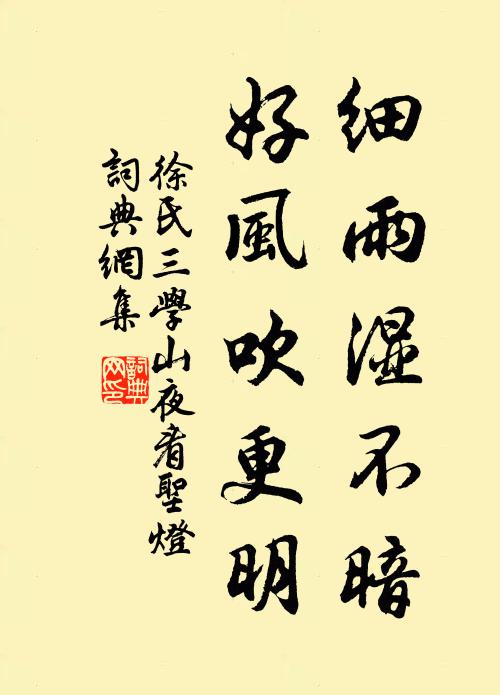 細雨湿不暗
好風吹更明
徐氏三學山夜看聖燈
詞典網集
詞典
网印